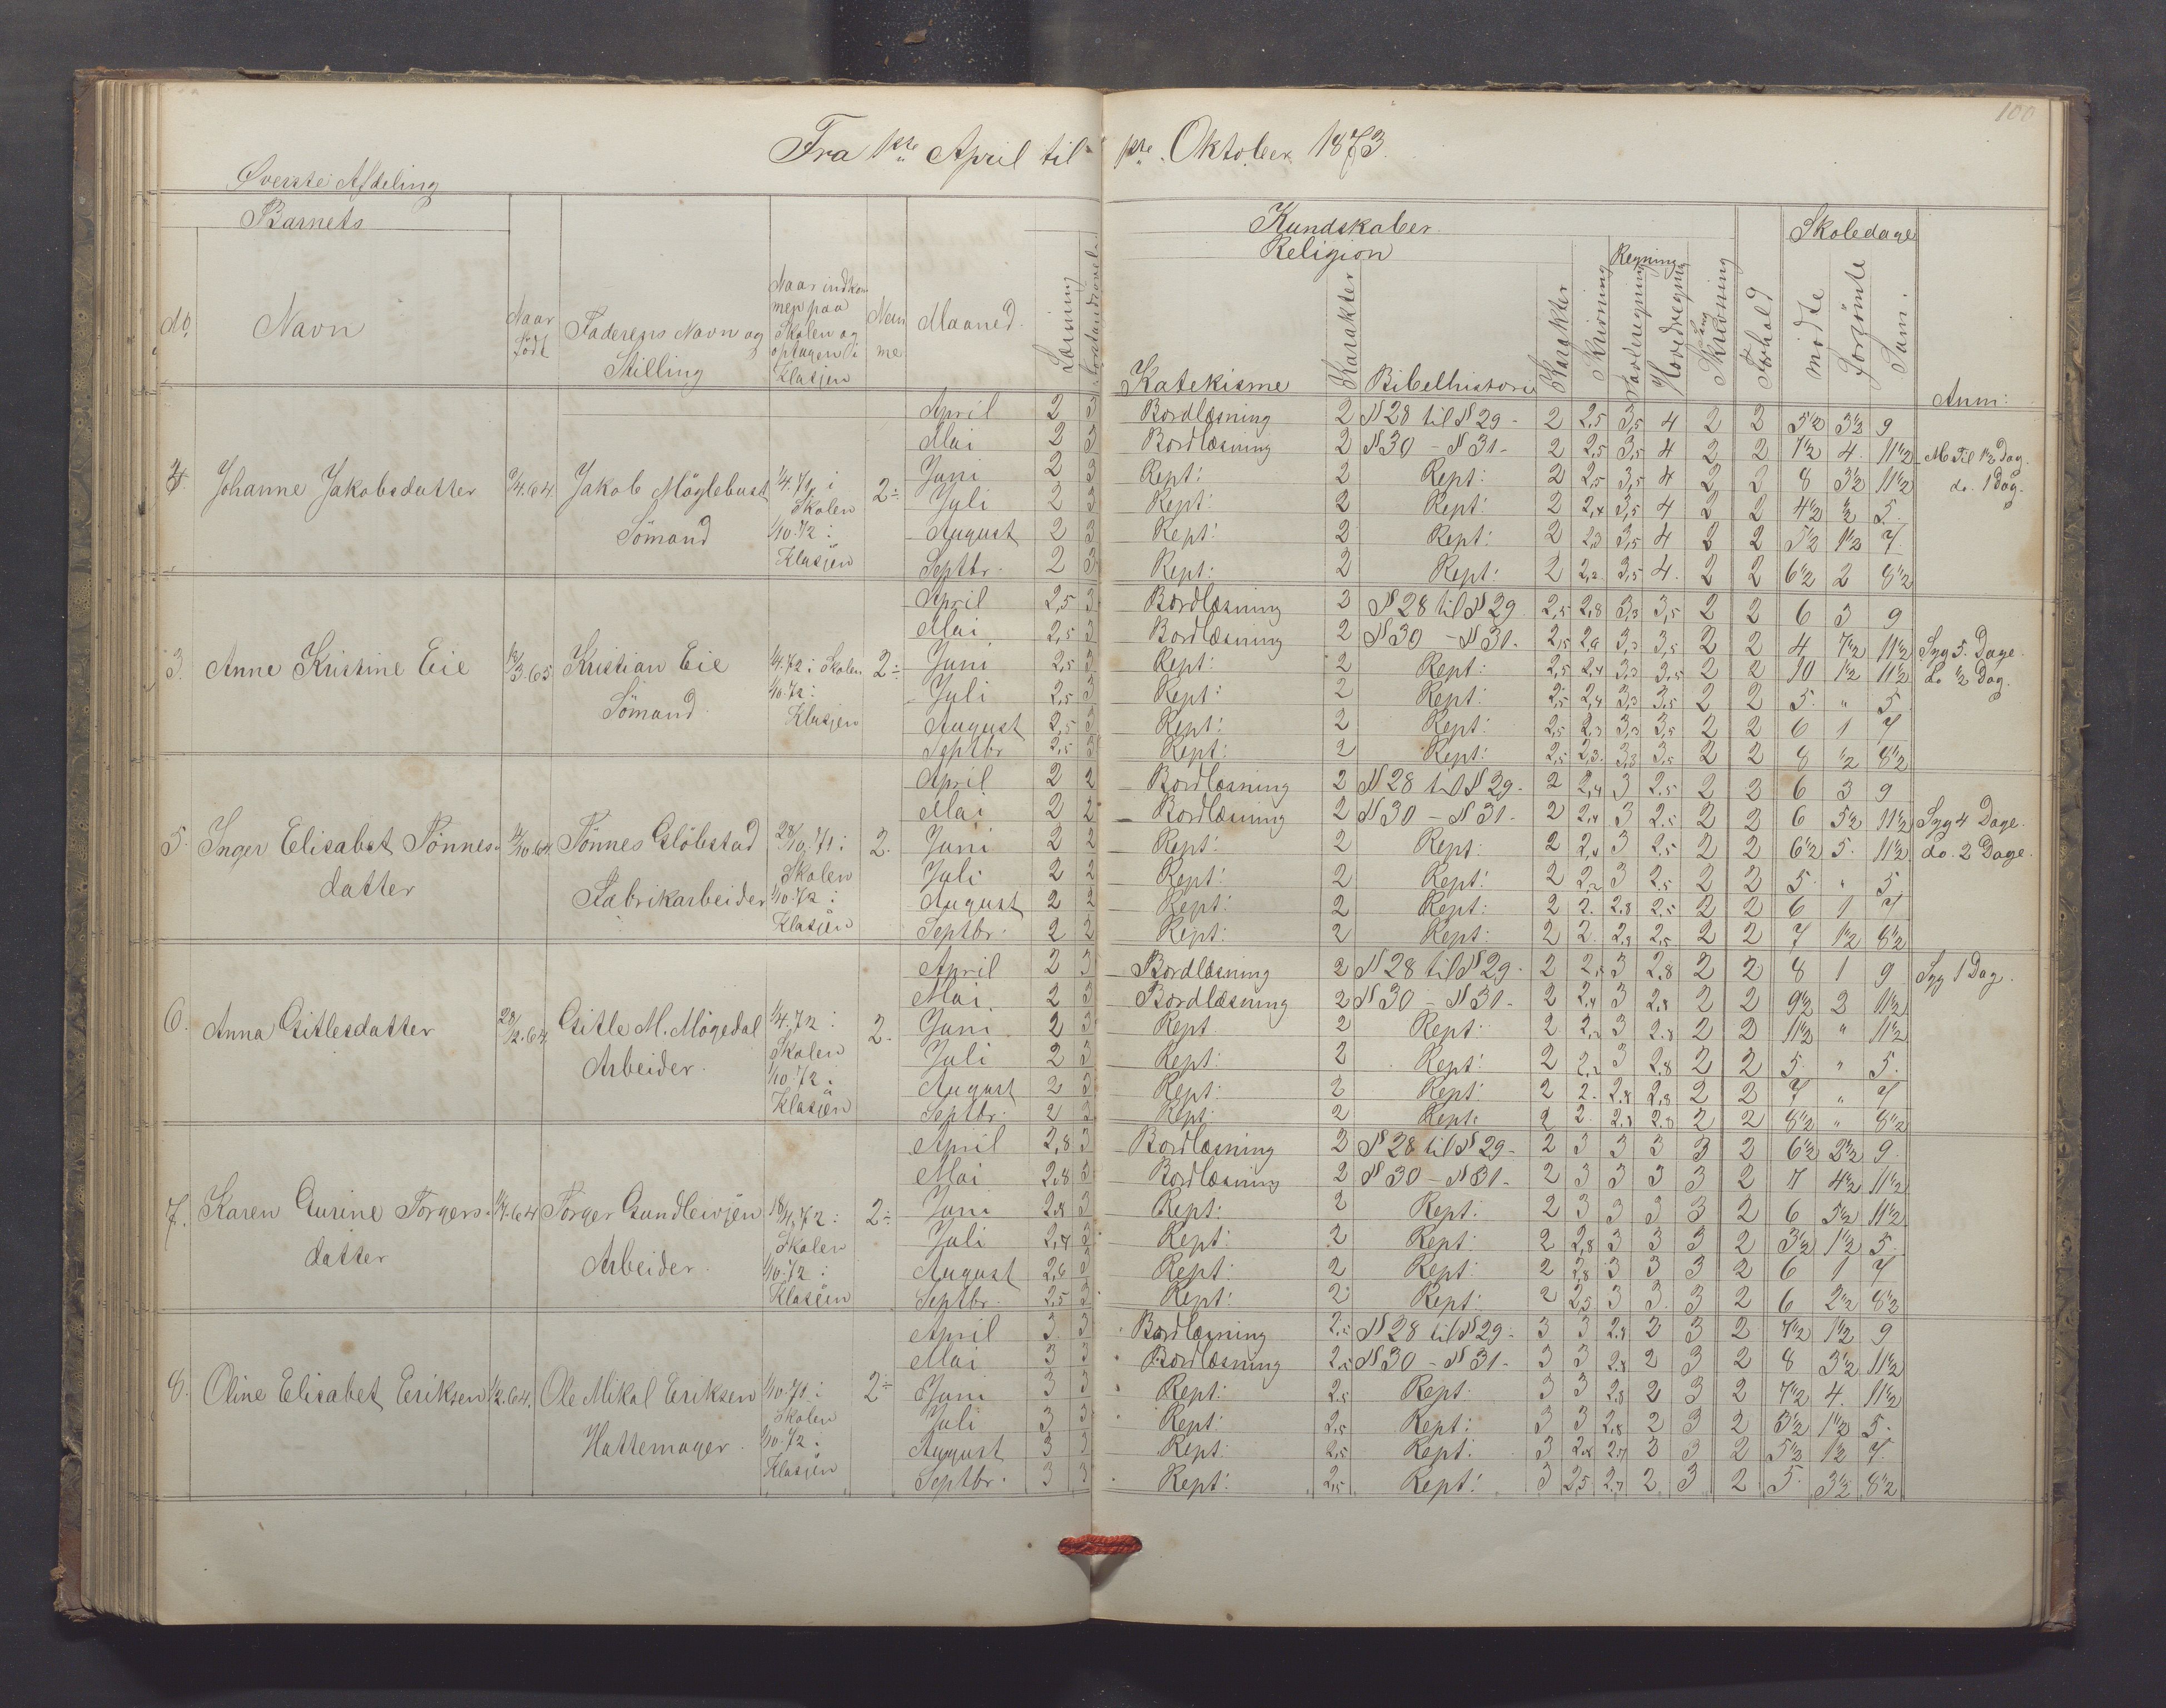 100
Fra 1ste April til 1ste Oktober 1873.
Øverste Afdeling
Barnets
No. Navn
Naar Födt
Faderens Navn og Stilling
Naar indkommen paa Skolen og optagen i Klassen
Nemme
Maaned
Læsning
Forstandsøvelse
Kundskaber
Religion
Katekisme
Karakter
Bibelhistorie
Karakter
Skrivning
Regning
Tavleregning
Hovedregning
Sang
Forhold
Skoledage
mödte
Forsömte
Sum.
Anm:
Johanne Jakobsdatter
Jakob Möglebust
Sömand
1/4.71 i Skolen
1/10.72 i Klassen
2÷
April 2 3 Bordlæsning 2 § 28 til § 29 - 2 2,5 3,5 4 2 2 5½ 3½ 9
Mai 2 3 Bordlæsning 2 § 30 - § 31 - 2 2,5 3,5 4 2 2 7½ 4 11½
Juni 2 3 Rept: 2 Rept: 2 2,5 3,5 4 2 2 8 3½ 11½
Juli 2 3 Rept: 2 Rept: 2 2,4 3,5 4 2 2 4½ ½ 5
August 2 3 Rept: 2 Rept: 2 2,3 3,5 4 2 2 5½ 1½ 7
Septbr. 2 3 Rept: 2 Rept: 2 2,2 3,5 4 2 2 6½ 2 8½
M Til 1½ Dag.
do. 1 Dag.
3. Anne Kristine Eie
Kristian Eie
Sömand
1/4.72 i Skolen
1/10.72 i Klassen
2÷
April 2,5 3 Bordlæsning 2 § 28 til § 29 2,5 2,8 3,3 3,5 2 2 6 3 9
Mai 2,5 3 Bordlæsning 2 § 30 - § 31. 2,5 2,6 3,3 3,5 2 2 4 7½ 11½ Syg 5 Dage.
Juni 2,5 3 Rept: 2 Rept: 2,5 2,4 3,3 3,5 2 2 10 1½ 11½ do ½ Dag.
Juli 2,5 3 Rept: 2 Rept: 2,5 2,4 3,3 3,5 2 2 5 " 5
August 2,5 3 Rept: 2 Rept: 2,5 2,3 3,3 3,5 2 2 6 1 7
Septbr 2,5 3 Rept: 2 Rept: 2,5 2,3 3,3 3,5 2 2 8 ½ 8½
5. Inger Elisabet Tönnesdatter
Tönnes Glöbstad
Fabrikarbeider
28/10.71 i Skolen
1/10.72 i Klassen
2.
April 2 2 Bordlæsning 2 § 28 til § 29 - 2 2,4 3 2,5 2 2 6 3 9
Mai 2 2 Bordlæsning 2 § 30 - § 31 - 2 2,4 3 2,5 2 2 6 5½ 11½ Syg 4 Dage.
Juni 2 2 Rept: 2 Rept: 2 2,3 3 2,5 2 2 6½ 5 11½ do. 2 Dage.
Juli 2 2 Rept: 2 Rept: 2 2,2 3 2,5 2 2 5 " 5
August 2 2 Rept: 2 Rept: 2 2. 2,8 2,5 2 2 6 1 7
Septbr. 2 2 Rept: 2 Rept: 2 2. 2,8 2,5 2 2 7 1½ 8½
6. Anna Gitlesdatter 28/2.64.
Gitle M. Mögedal
Arbeider.
1/4.72 i Skolen
1/10.72 i Klassen
2.
April 2 3 Bordlæsning 2 § 28 til § 29 - 2 2,5 3 2,8 2 2 8 1 9 Syg 1 Dag.
Mai 2 3 Bordlæsning 2 § 30 - § 31 - 2 2,4 3 2,8 2 2 9½ 2 11½
Juni 2 3 Rept 2 Rept: 2 2,2 3 2,8 2 2 11½ " 11½
Juli 2 3 Rept: 2 Rept: 2 2,2 3 2,8 2 2 5 " 5
August 2 3 Rept: 2 Rept: 2 2. 2,8 2,8 2 2 7 " 7
Septbr. 2 3 Rept 2 Rept: 2 2 2,8 2,8 2 2 8½ " 8½
7. Karen Gurine Torgersdatter
Torger Gundlewsen
Arbeider.
18/4.72 i Skolen
1/10.72 i Klassen
2÷
April 2,8 3 Bordlæsning 2 § 28 til § 29 - 2 3 3 3 3 2 6½ 2½ 9
Mai 2,8 3 Bordlæsning 2 § 30 - § 31 - 2 3 3 3 3 2 7 4½ 11½
Juni 2,8 3 Rept: 2 Rept: 2 3 3 3 3 2 6 5½ 11½
Juli 2,7 3 Rept: 2 Rept: 2 2,8 3 3 3 2 3½ 1½ 5
August 2,6 3 Rept: 2 Rept: 2 2,8 3 3 3 2 6 1 7
Septbr. 2,5 3 Rept: 2 Rept: 2 2,5 3 3 3 2 6 2½ 8½
8. Oline Elisabet Eriksen 1/2.64.
Ole Mikal Eriksen
Hattemager.
1/10.71 i Skolen
1/10.72 i Klassen
2÷
April 3 3 Bordlæsning 2,5 § 28 til § 29 - 3 3 2,8 2 3 2 7½ 1½ 9
Mai 3 3 Bordlæsning 2,5 § 30 - § 31 - 3 3 2,8 2 3 2 8 3½ 11½
Juni 3 3 Rept: 2,5 Rept: 3 3 2,8 2 3 2 7½ 4 11½
Juli 3 3 Rept: 2,5 Rept: 3 3 2,8 2 3 2 3½ 1½ 5
August 3 3 Rept: 2,5 Rept: 3 2,8 2,7 2 3 2 5½ 1½ 7
Septbr. 3 3 Rept: 2,5 Rept: 3 2,5 2,7 2 3 2 5 3½ 8½